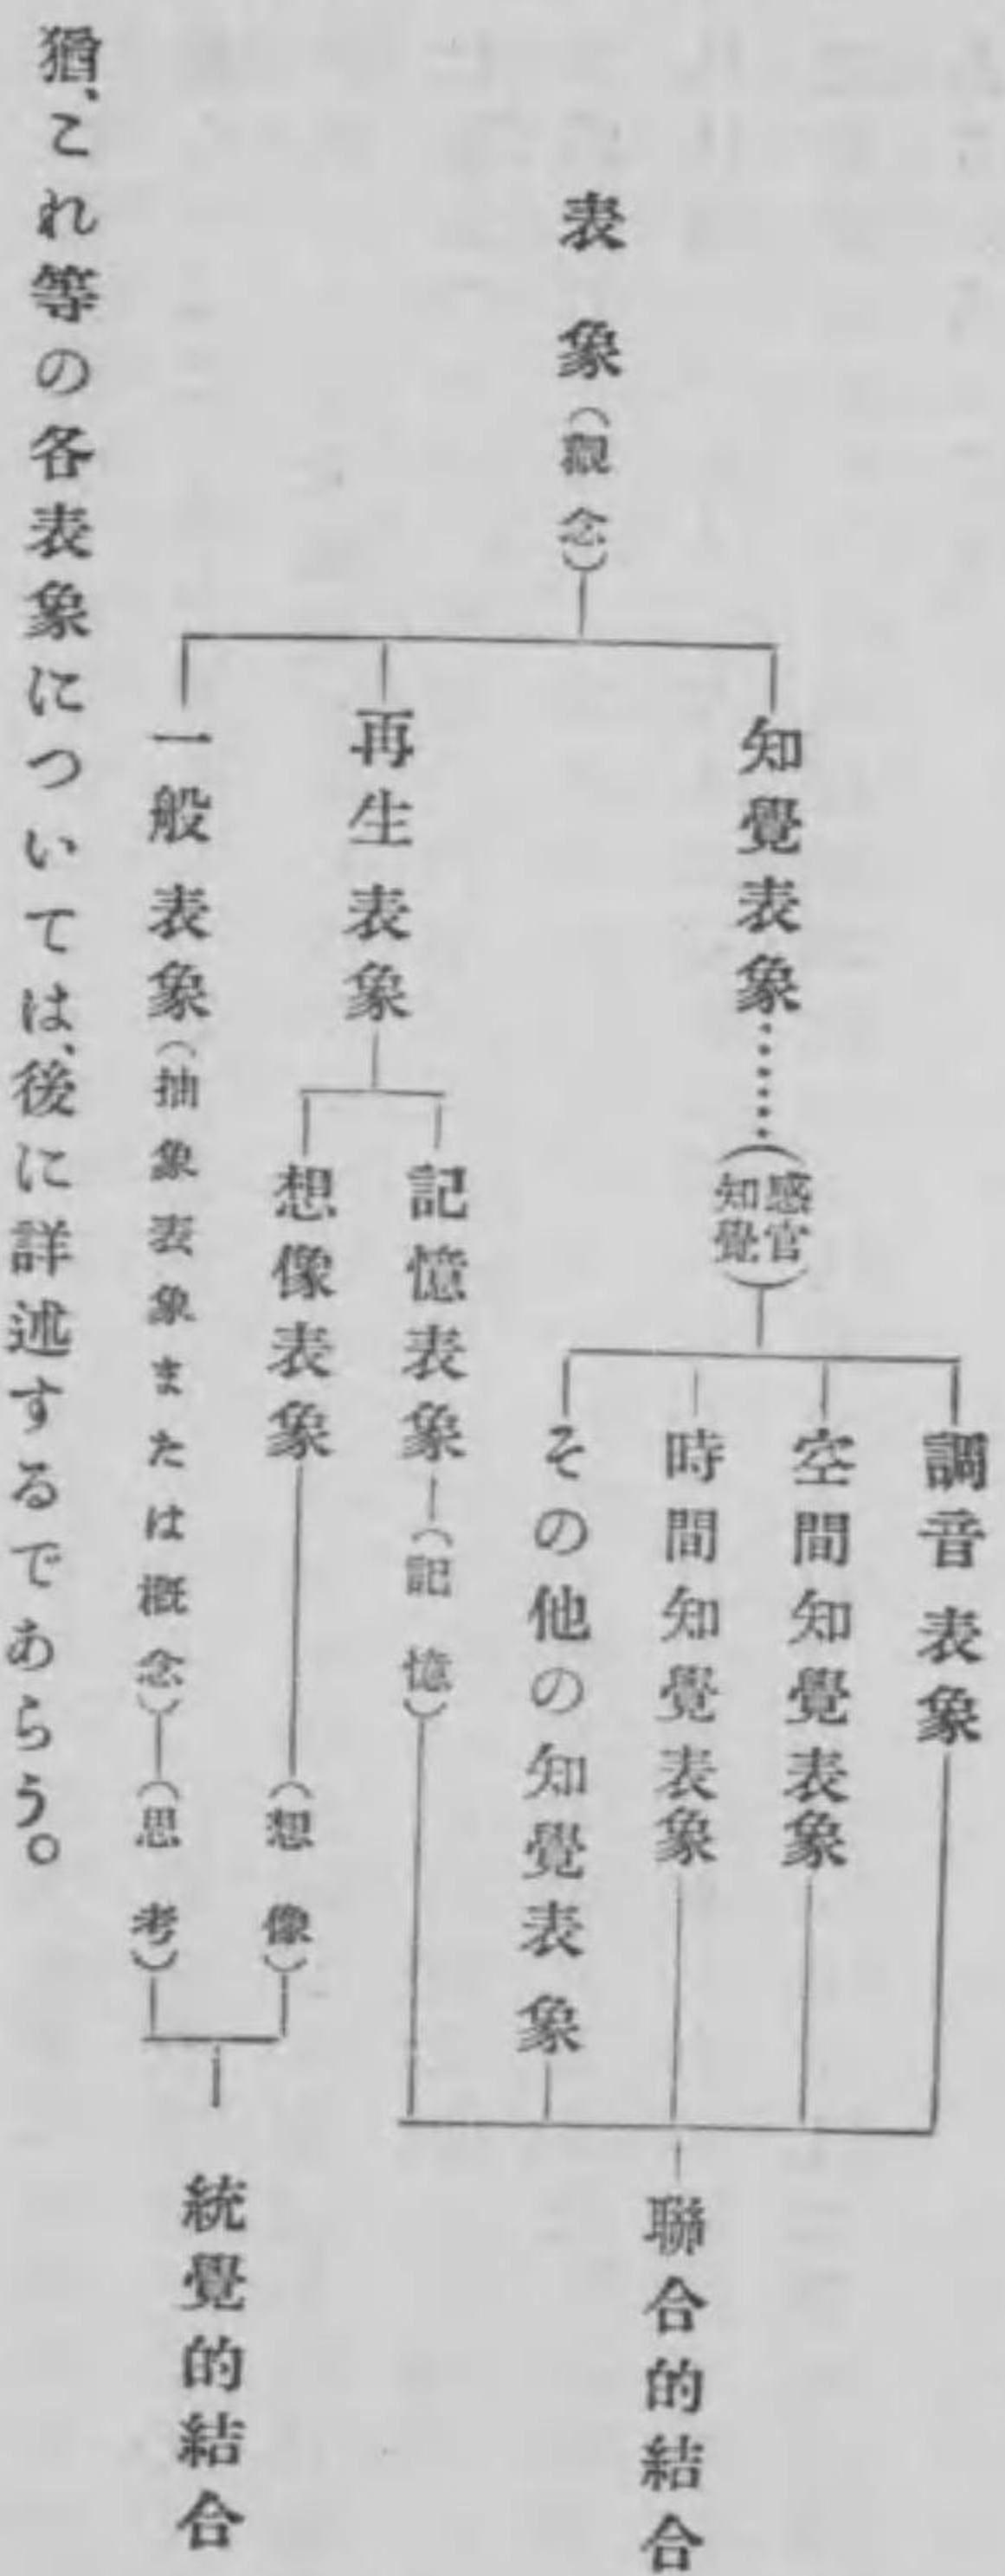 表象(觀念)
知覺表象……(感官知覺)
調音表象
空間知覺表象
時間知覺表象
その他の知覺表象
聯合的結合
再生表象
記憶表象―(記憶)
想像表象―(想像)
一般表象(抽象表象または概念)―(思考)
統覺的結合
猶、これ等の各表象については、後に詳述するであらう。